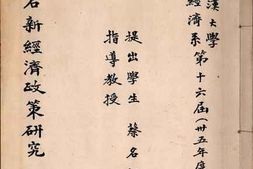 漢大學
經濟系第十六屆(卅五年度
提出學生 蔡名
指導教授
新經濟政策研究